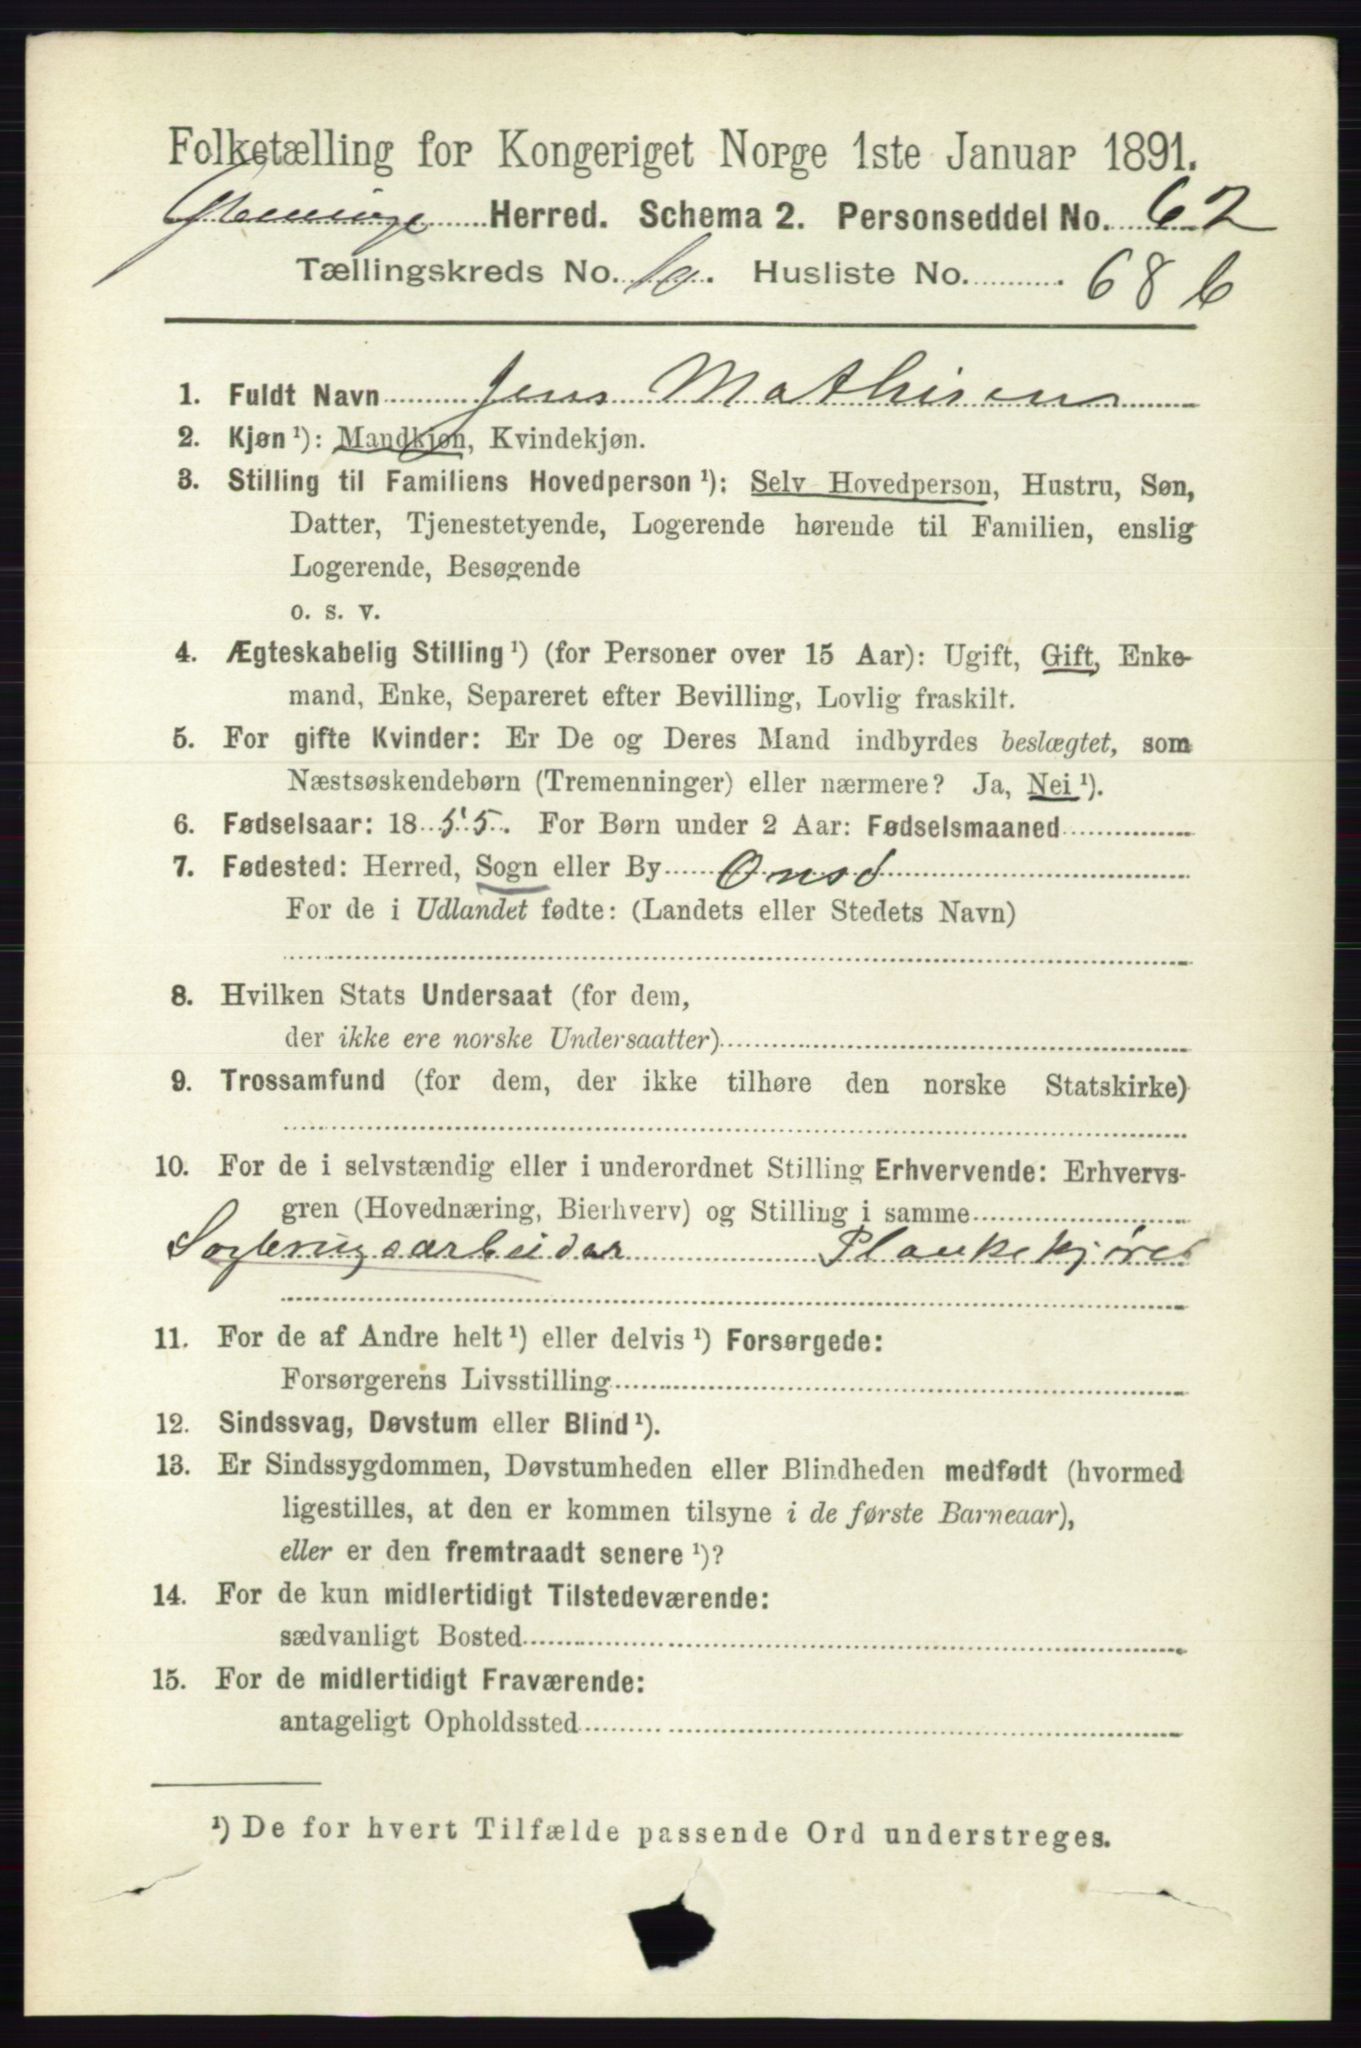 Folketælling for Kongeriget Norge 1ste Januar 1891.
Glemminge Herred. Schema 2. Personseddel No. 62
Tællingskreds No. 10. Husliste No. 68 b
1. Fuldt Navn Jens Mathisen
2. Kjøn ¹): Mandkjøn, Kvindekjøn.
3. Stilling til Familiens Hovedperson ¹): Selv Hovedperson, Hustru, Søn,
Datter, Tjenestetyende, Logerende hørende til Familien, enslig
Logerende, Besøgende
o. s. v.
4. Ægteskabelig Stilling ¹) (for Personer over 15 Aar): Ugift, Gift, Enke-
mand, Enke, Separeret efter Bevilling, Lovlig fraskilt.
5. For gifte Kvinder: Er De og Deres Mand indbyrdes beslægtet, som
Næstsøskendebørn (Tremenninger) eller nærmere? Ja, Nei ¹).
6. Fødselsaar: 1855. For Børn under 2 Aar: Fødselsmaaned
7. Fødested: Herred, Sogn eller By Onsø
For de i Udlandet fødte: (Landets eller Stedets Navn)
8. Hvilken Stats Undersaat (for dem,
der ikke ere norske Undersaatter)
9. Trossamfund (for dem, der ikke tilhøre den norske Statskirke)
10. For de i selvstændig eller i underordnet Stilling Erhvervende: Erhvervs-
gren (Hovednæring, Bierhverv) og Stilling i samme
Sagbrugsarbeider Plankekjører
11. For de af Andre helt ¹) eller delvis ¹) Forsørgede:
Forsørgerens Livsstilling
12. Sindssvag, Døvstum eller Blind ¹).
13. Er Sindssygdommen, Døvstumheden eller Blindheden medfødt (hvormed
ligestilles, at den er kommen tilsyne i de første Barneaar),
eller er den fremtraadt senere ¹)?
14. For de kun midlertidigt Tilstedeværende:
sædvanligt Bosted
15. For de midlertidigt Fraværende:
antageligt Opholdssted
¹) De for hvert Tilfælde passende Ord understreges.